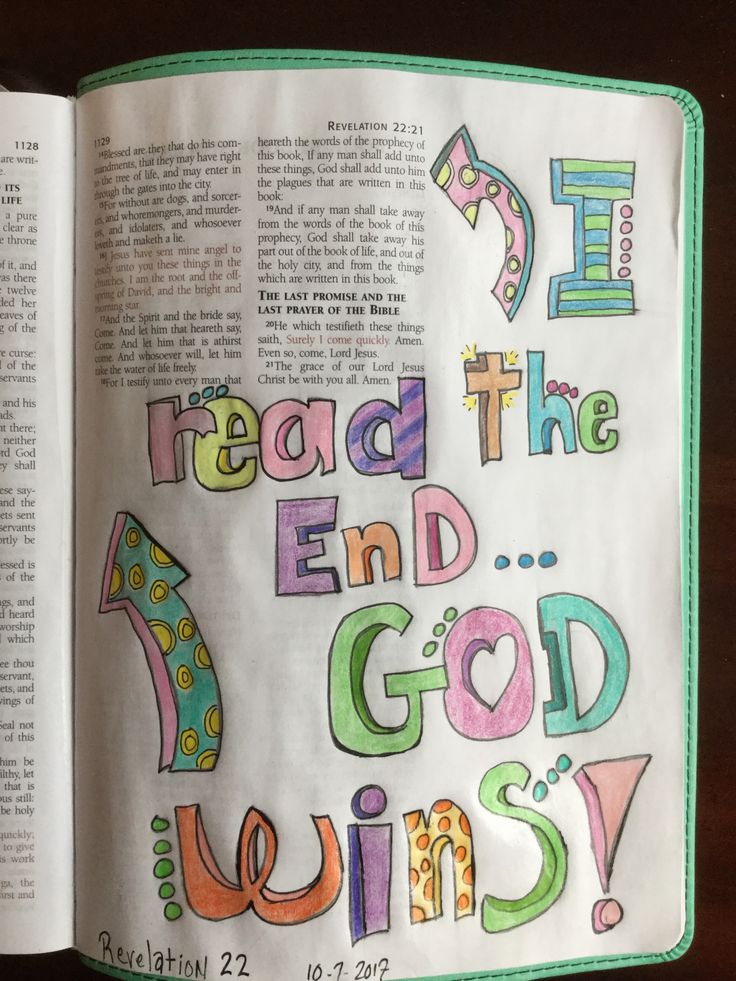 1128
are writ-
ITS
LIFE
a pure
clear as
throne
of it, and
was there
twelve
her
eaves of
of the
curse:
of the
servants
and his
ads.
there;
neither
God
shall
say-
and the
sent
servants
be
is
of the
and
heard
worship
which
thou
servant,
and
of
Seal not
of this
him be
let
that is
still:
be holy
quickly;
to give
work
the
and
1129
14Blessed are they that do his com-
mandments, that they may have right
to the tree of life, and may enter in
through the gates into the city.
15For without are dogs, and sorcer-
ers, and whoremongers, and murder-
ers, and idolaters, and whosoever
loveth and maketh a lie.
16I Jesus have sent mine angel to
testify unto you these things in the
churches. I am the root and the off-
spring of David, and the bright and
morning star.
17And the Spirit and the bride say,
Come. And let him that heareth say,
Come. And let him that is athirst
come. And whosoever will, let him
take the water of life freely.
18For I testify unto every man that
REVELATION 22:21
heareth the words of the prophecy of
this book, If any man shall add unto
these things, God shall add unto him
the plagues that are written in this
book:
19And if any man shall take away
from the words of the book of this
prophecy, God shall take away his
part out of the book of life, and out of
the holy city, and from the things
which are written in this book.
THE LAST PROMISE AND THE
LAST PRAYER OF THE BIBLE
20He which testifieth these things
saith, Surely I come quickly. Amen.
Even so, come, Lord Jesus.
21The grace of our Lord Jesus
Christ be with you all. Amen.
I
read the
EnD...
GOD
wins!
Revelation 22 10-7-2017